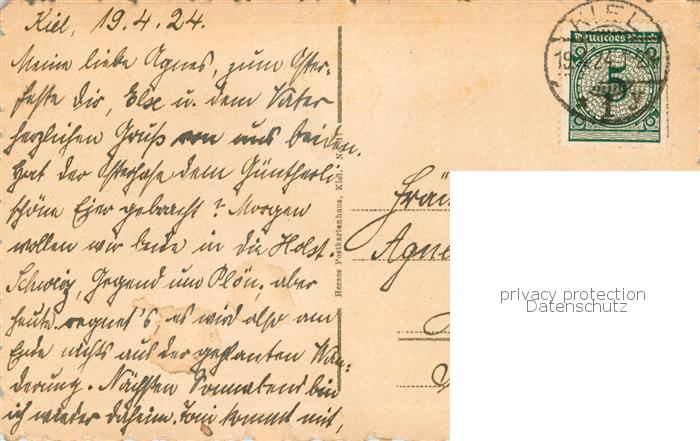 Kiel, 19.4.24.
Meine liebe Agnes, zum Oster-
feste dir, Else u. dem Vater
herzlichen Gruß von uns beiden.
Hat der Osterhase dem Güntherli
schöne Eier gebracht? Morgen
wollen wir beide in die Holst.
Schweiz, Gegend um Plön, aber
heute regnet's, es wird also am
Ende nichts aus der geplanten Wan-
derung. Nächsten Sonnabend bin
ich wieder daheim. Toni kommt mit,
Hesses Postkartenhaus, Kiel.
KIEL
Deutsches Reich
5
Fräu
Agne
privacy protection
Datenschutz